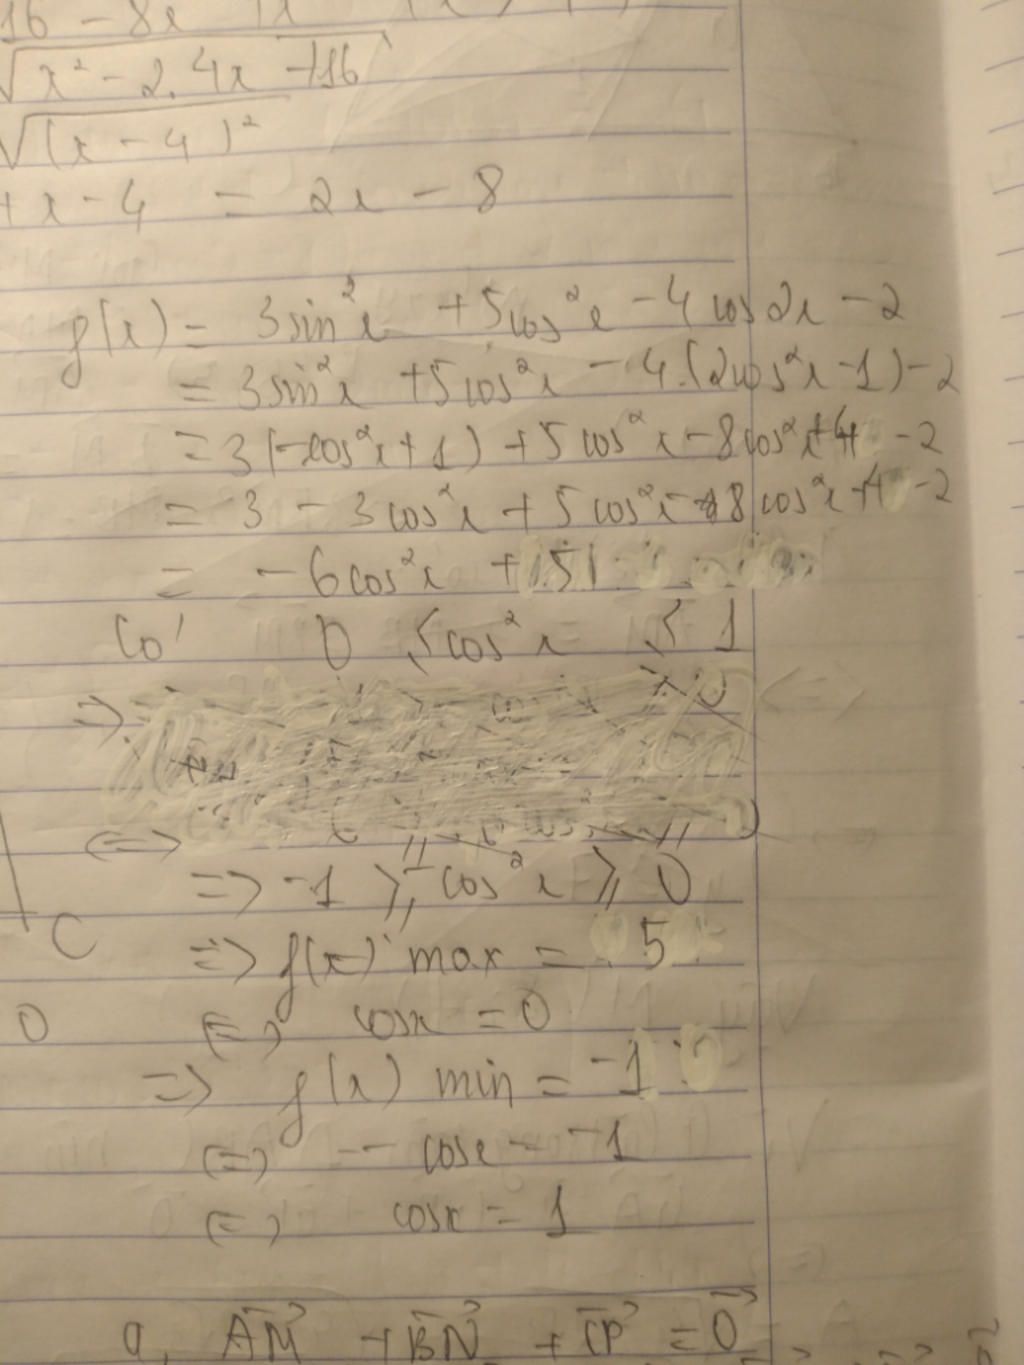 16 - 8x
√x² - 2.4x + 16
√(x - 4)²
+ x - 4 = 2x - 8
f(x) = 3sin²x + 5cos²x - 4cos2x - 2
= 3sin²x + 5cos²x - 4.(2cos²x - 1) - 2
= 3(-cos²x + 1) + 5cos²x - 8cos²x + 4 - 2
= 3 - 3cos²x + 5cos²x - 8cos²x + 4 - 2
= -6cos²x + 5
Có 0 ≤ cos²x ≤ 1
=>
<=>
=> -1 ≥ -cos²x ≥ 0
C
=> f(x) max = 5
O <=> cosx = 0
=> f(x) min = -1
<=> - cosx = -1
<=> cosx = 1
a, AM⃗ + BN⃗ + CP⃗ = 0⃗